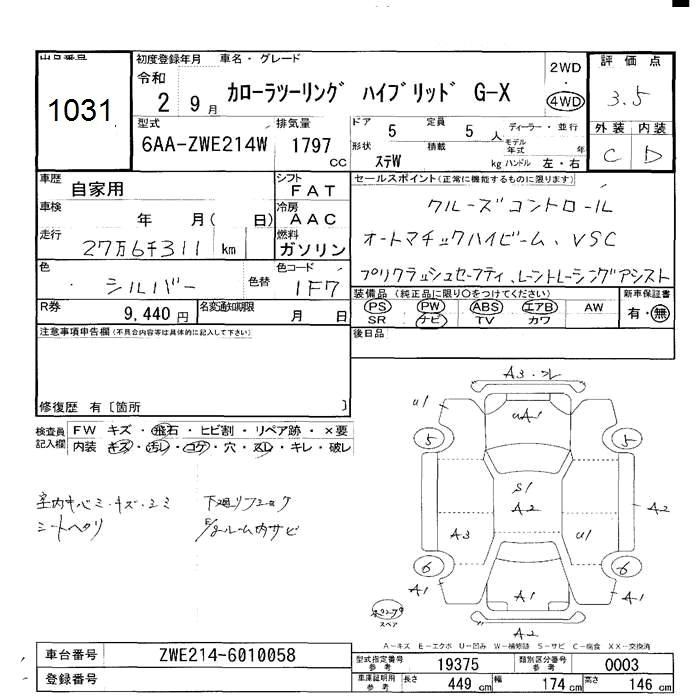 出品番号
1031
初度登録年月
令和
2 9月
車名・グレード
カローラツーリング ハイブリッド G-X
2WD
・
4WD
評価点
3.5
外装 内装
C D
型式
6AA-ZWE214W
排気量
1797
CC
ドア
5
定員
5 人
ディーラー・並行
形状
ステW
積載
kg
モデル年式
年
ハンドル 左・右
車歴
自家用
シフト
FAT
車検
年 月( 日)
冷房
AAC
走行
27万6千311 km
燃料
ガソリン
色
シルバー
色替
色コード
1F7
R券
9,440 円
名変通知期限
月 日
セールスポイント(正常に機能するものに限ります)
クルーズコントロール
オートマチックハイビーム、VSC
プリクラッシュセーフティ、レーントレーシングアシスト
装備品 (純正品に限り○をつけてください)
PS PW ABS エアB AW
SR ナビ TV カワ
新車保証書
有・無
後日品
注意事項申告欄(不具合内容等は具体的に記入して下さい)
修復歴 有〔箇所 〕
検査員記入欄
FW キズ・飛石・ヒビ割・リペア跡・×要
内装 キズ・汚レ・コゲ・穴・スレ・キレ・破レ
室内キバミ・キズ・シミ
シートヘタリ
下廻リ
ルーム内サビ
A3・
u1
uA1
5
5
S1
A2
A2
A3
u1
6
6
A1
A1
A1
A2
スペア
A−キズ E−エクボ U−凹み W−補修跡 S−サビ C−腐食 XX−交換済
車台番号
ZWE214-6010058
登録番号
型式指定番号
参考
19375
類別区分番号
参考
0003
車庫証明用
参考
長さ
449 cm
幅
174 cm
高さ
146 cm